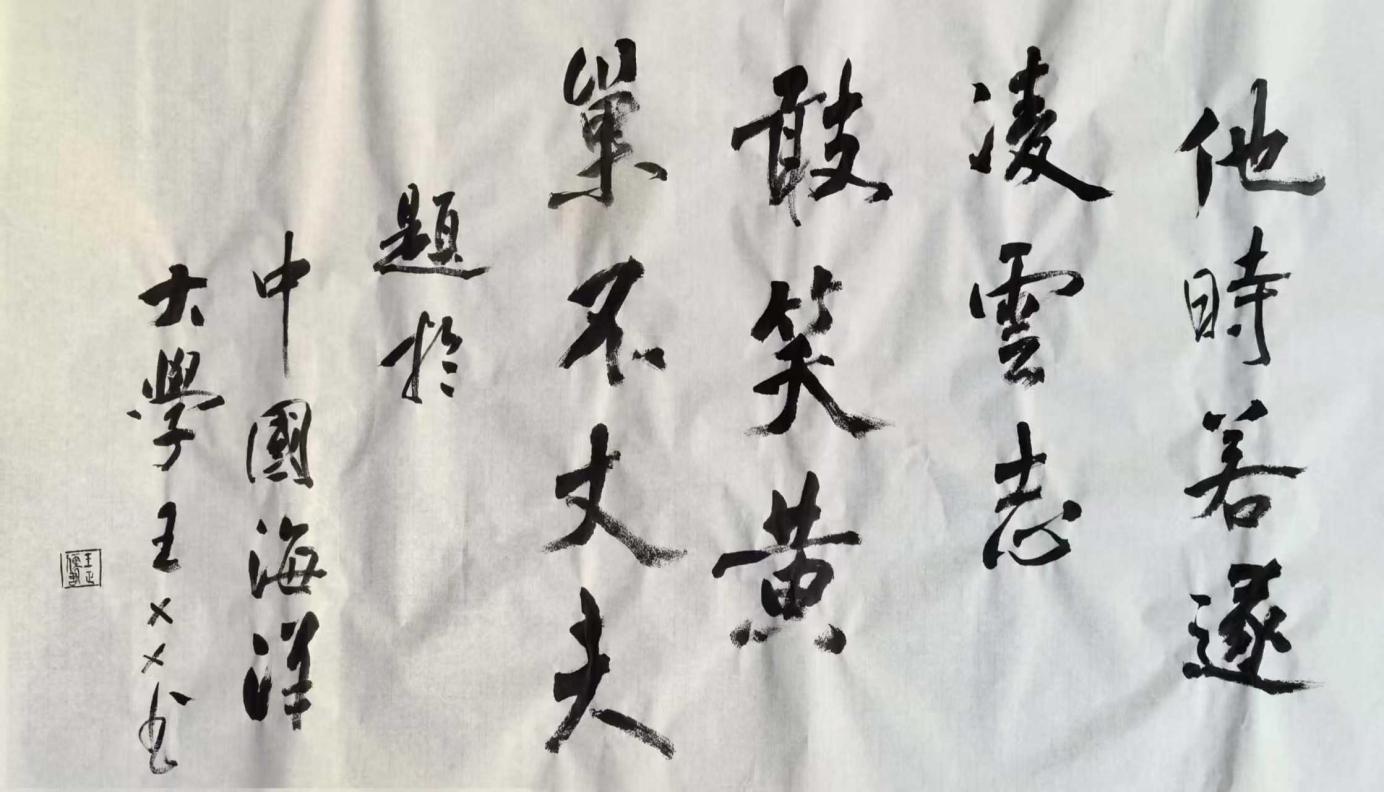 他時若遂
凌雲志
敢笑黄
巢不丈夫
題於
中國海洋
大學王××书